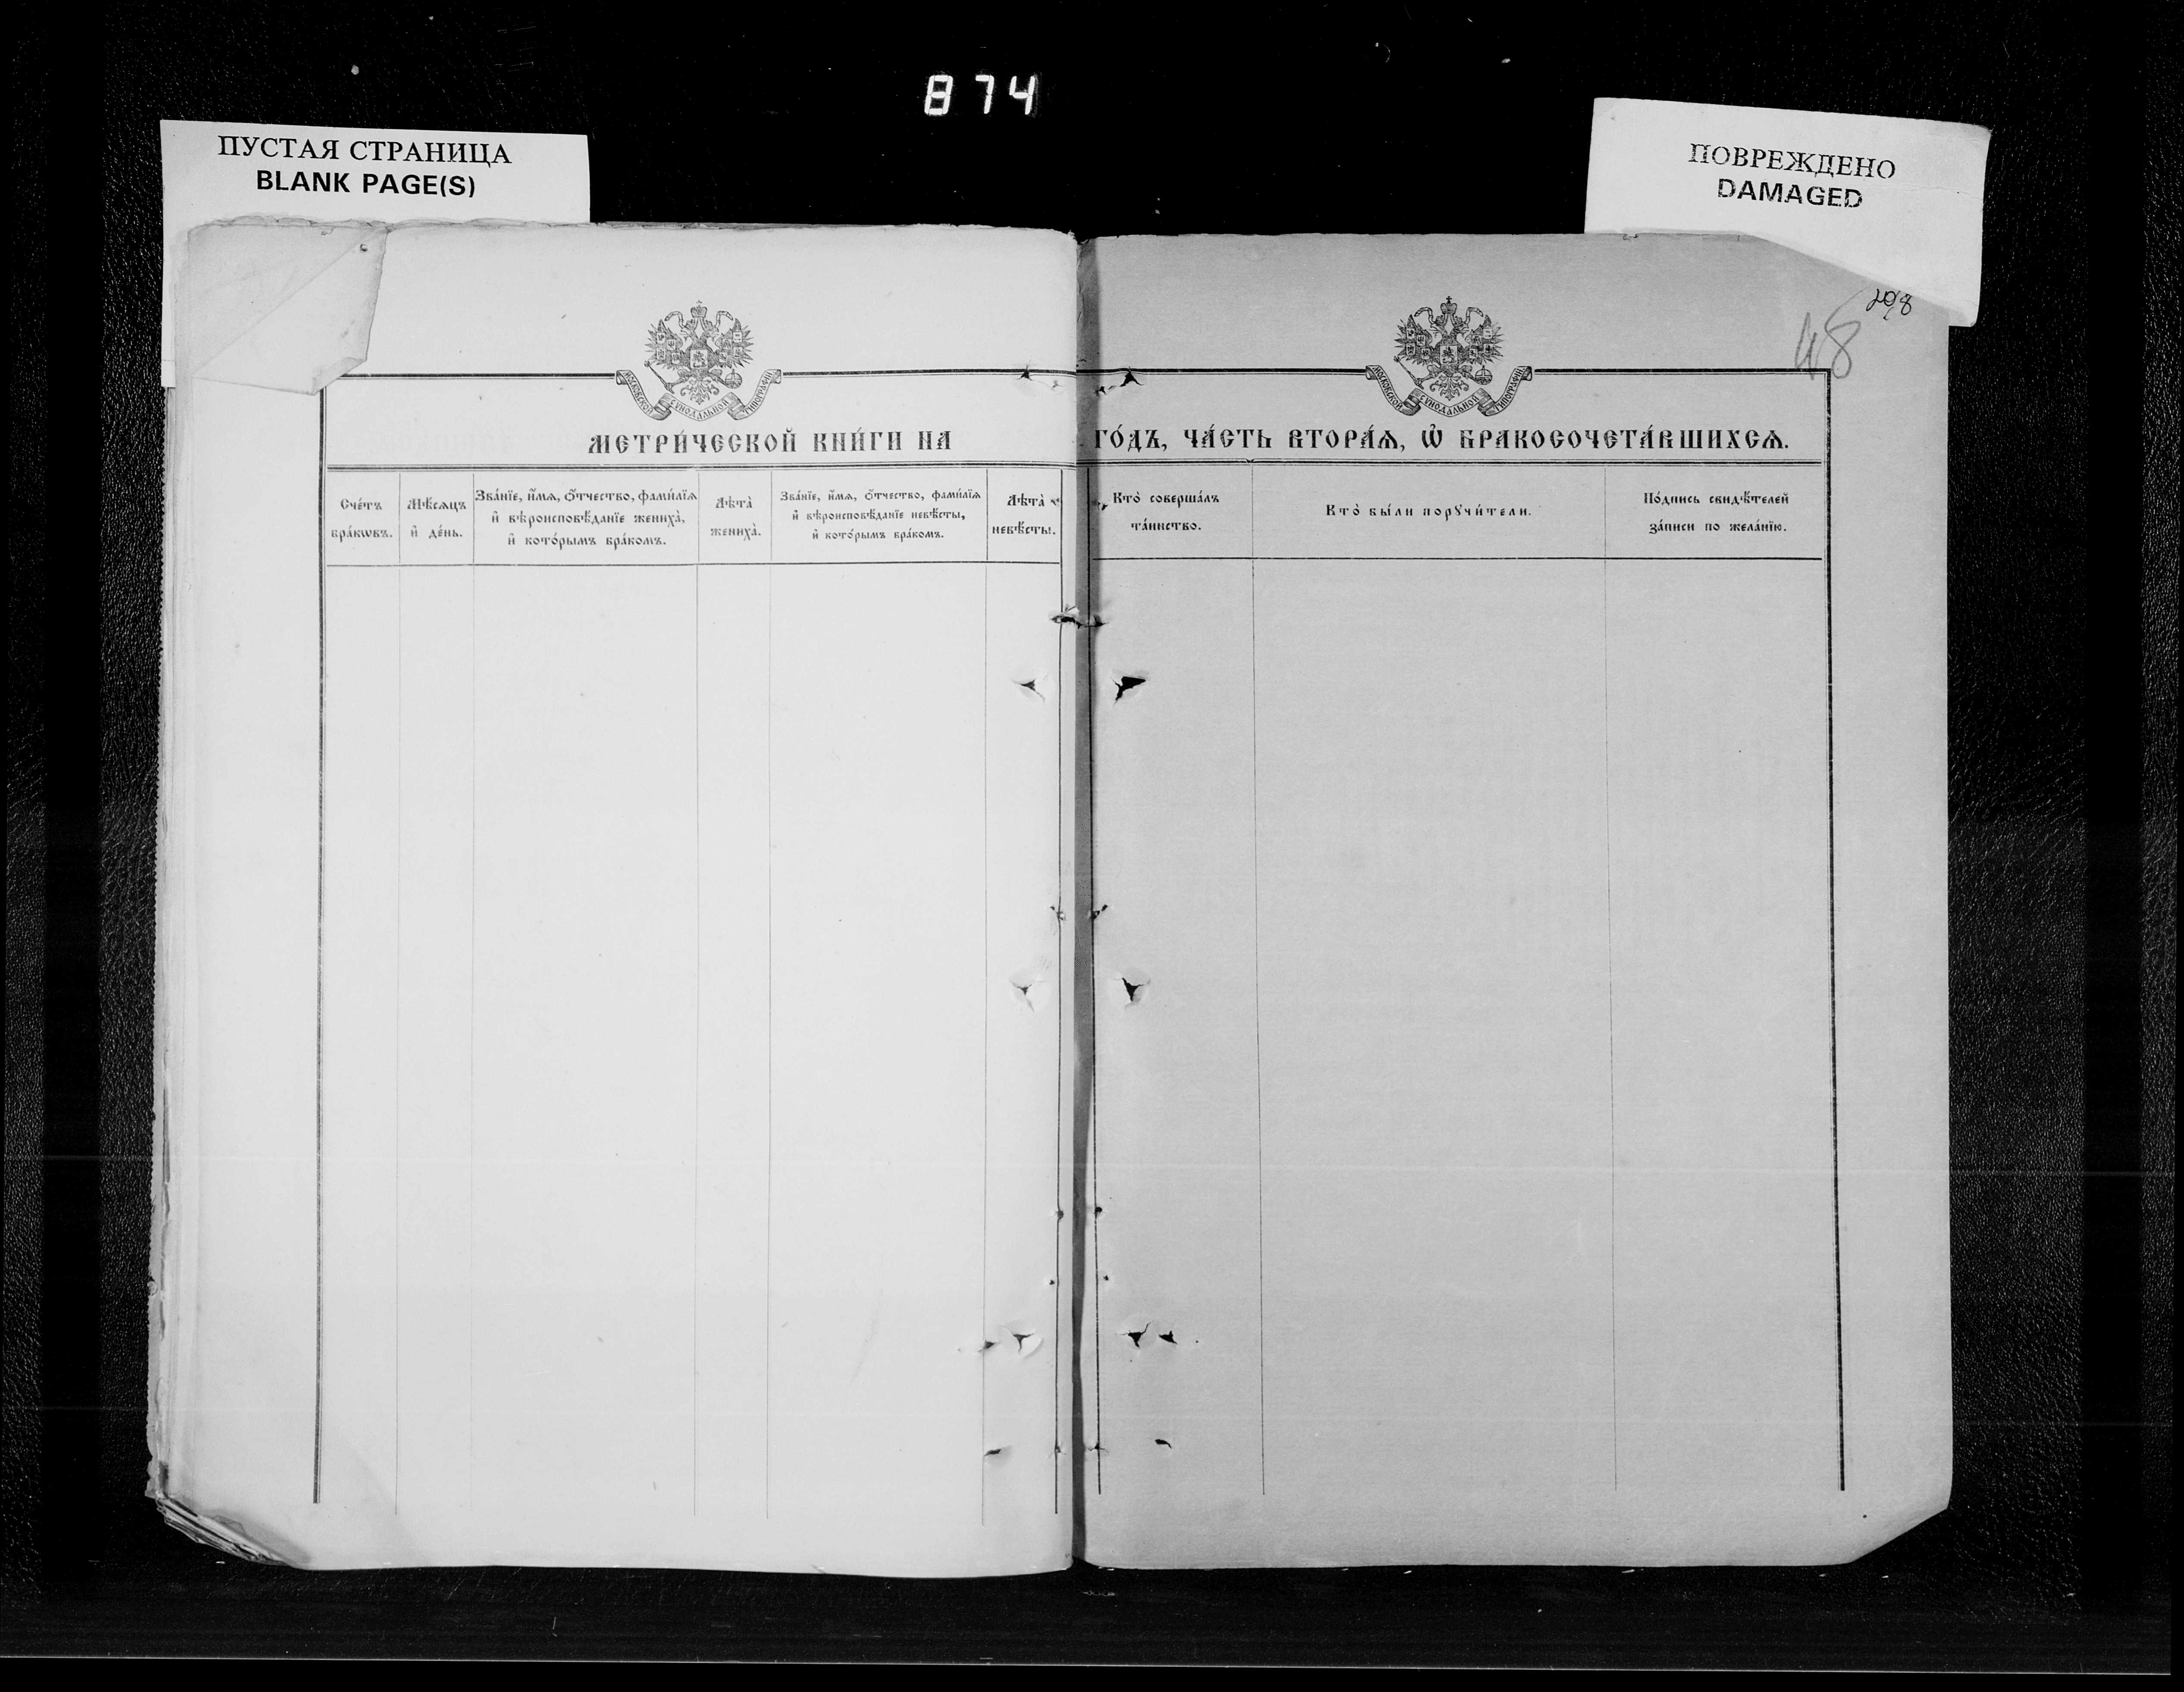 874
ПУСТАЯ СТРАНИЦА
BLANK PAGE(S)
ПОВРЕЖДЕНО
DAMAGED
298
48
МОСКОВСКОЙ СѴНОДАЛЬНОЙ ТИПОГРАФІИ
МОСКОВСКОЙ СѴНОДАЛЬНОЙ ТИПОГРАФІИ
МЕТРИ́ЧЕСКОЙ КНИ́ГИ НА ГО́ДЪ, ЧА́СТЬ ВТОРА́Ѧ, Ѡ҆ БРАКОСОЧЕТА́ВШИХСѦ.
Сче́тъ
бра́кѡвъ.
Мѣ́сѧцъ
и҆ де́нь.
Зва́нїе, и҆́мѧ, ѻ҆́тчество, фами́лїѧ
и҆ вѣроисповѣ́данїе жениха̀,
и҆ кото́рымъ бра́комъ.
Лѣта̀
жениха̀.
Зва́нїе, и҆́мѧ, ѻ҆́тчество, фами́лїѧ
и҆ вѣроисповѣ́данїе невѣ́сты,
и҆ кото́рымъ бра́комъ.
Лѣта̀
невѣ́сты.
Кто̀ соверша́лъ
та́инство.
Кто̀ бы́ли порꙋчи́тели.
По́дпись свидѣ́телей
за́писи по жела́нїю.